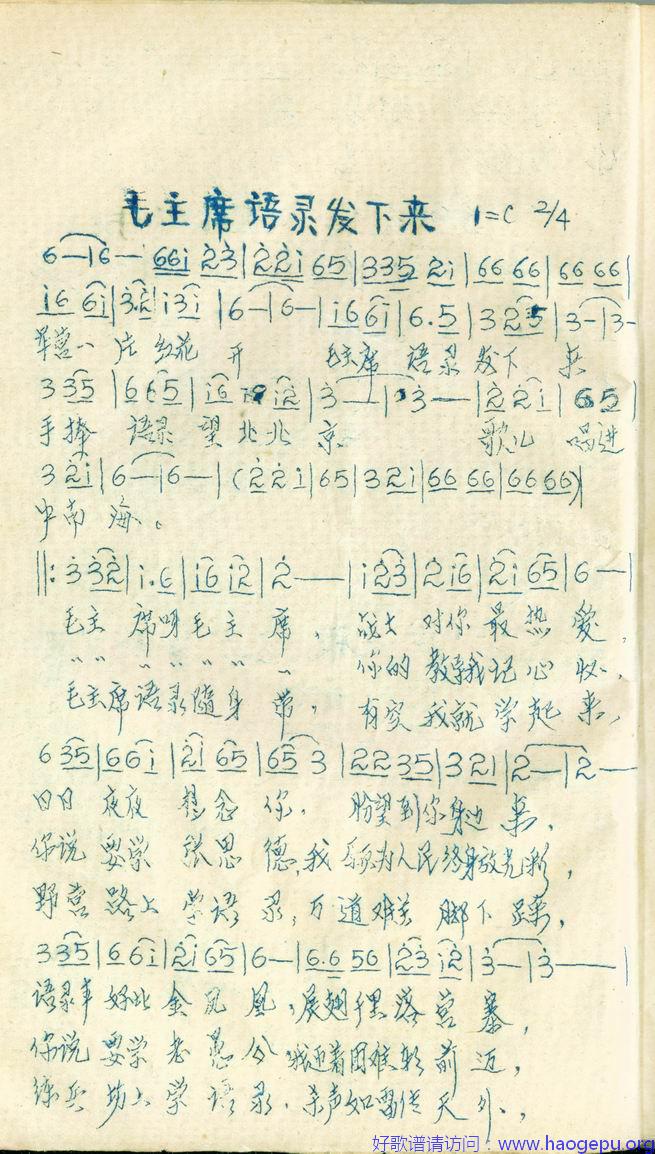 毛主席语录发下来 1=C 2/4
6—|6— 66i 23|22i 65|335 2i|66 66|66 66|
i6 6i|32|i3i|6—|6—|i6 6i|6.5|3 25|3—|3—
军营一片红花开 毛主席语录发下来
3 35|665|i6 i2|3—|3—|22i|65|
手捧语录望北 京 歌儿唱进
3 2i|6—|6—|(22i|65|32i|66 66|66 66)|
中南海。
‖:3 32|i.6|i6 i2|2—|i 23|2 i6|2i 65|6—|
毛主席呀毛主席，战士对你最热爱，
〃〃〃〃〃〃〃 你的教导我记心怀，
毛主席语录随身带，有空我就学起来，
6 35|66i|2i 65|65 3|22 35|3 21|2—|2—
日日夜夜想念你，盼望到你身边来，
你说要学张思德，我为人民终身放光彩，
野营路上学语录，万道难关脚下踩，
3 35|66i|2i 65|6—|6.6 56|23 i2|3—|3—|
语录本好比金凤凰，展翅落营寨，
你说要学老愚公，我迎着困难朝前迈，
练兵场上学语录，杀声如雷传天外，
好歌谱请访问：www.haogepu.org